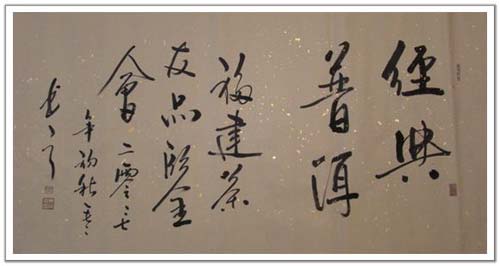 經典
普洱
福建茶
友品鑒
會二零零七
年初秋